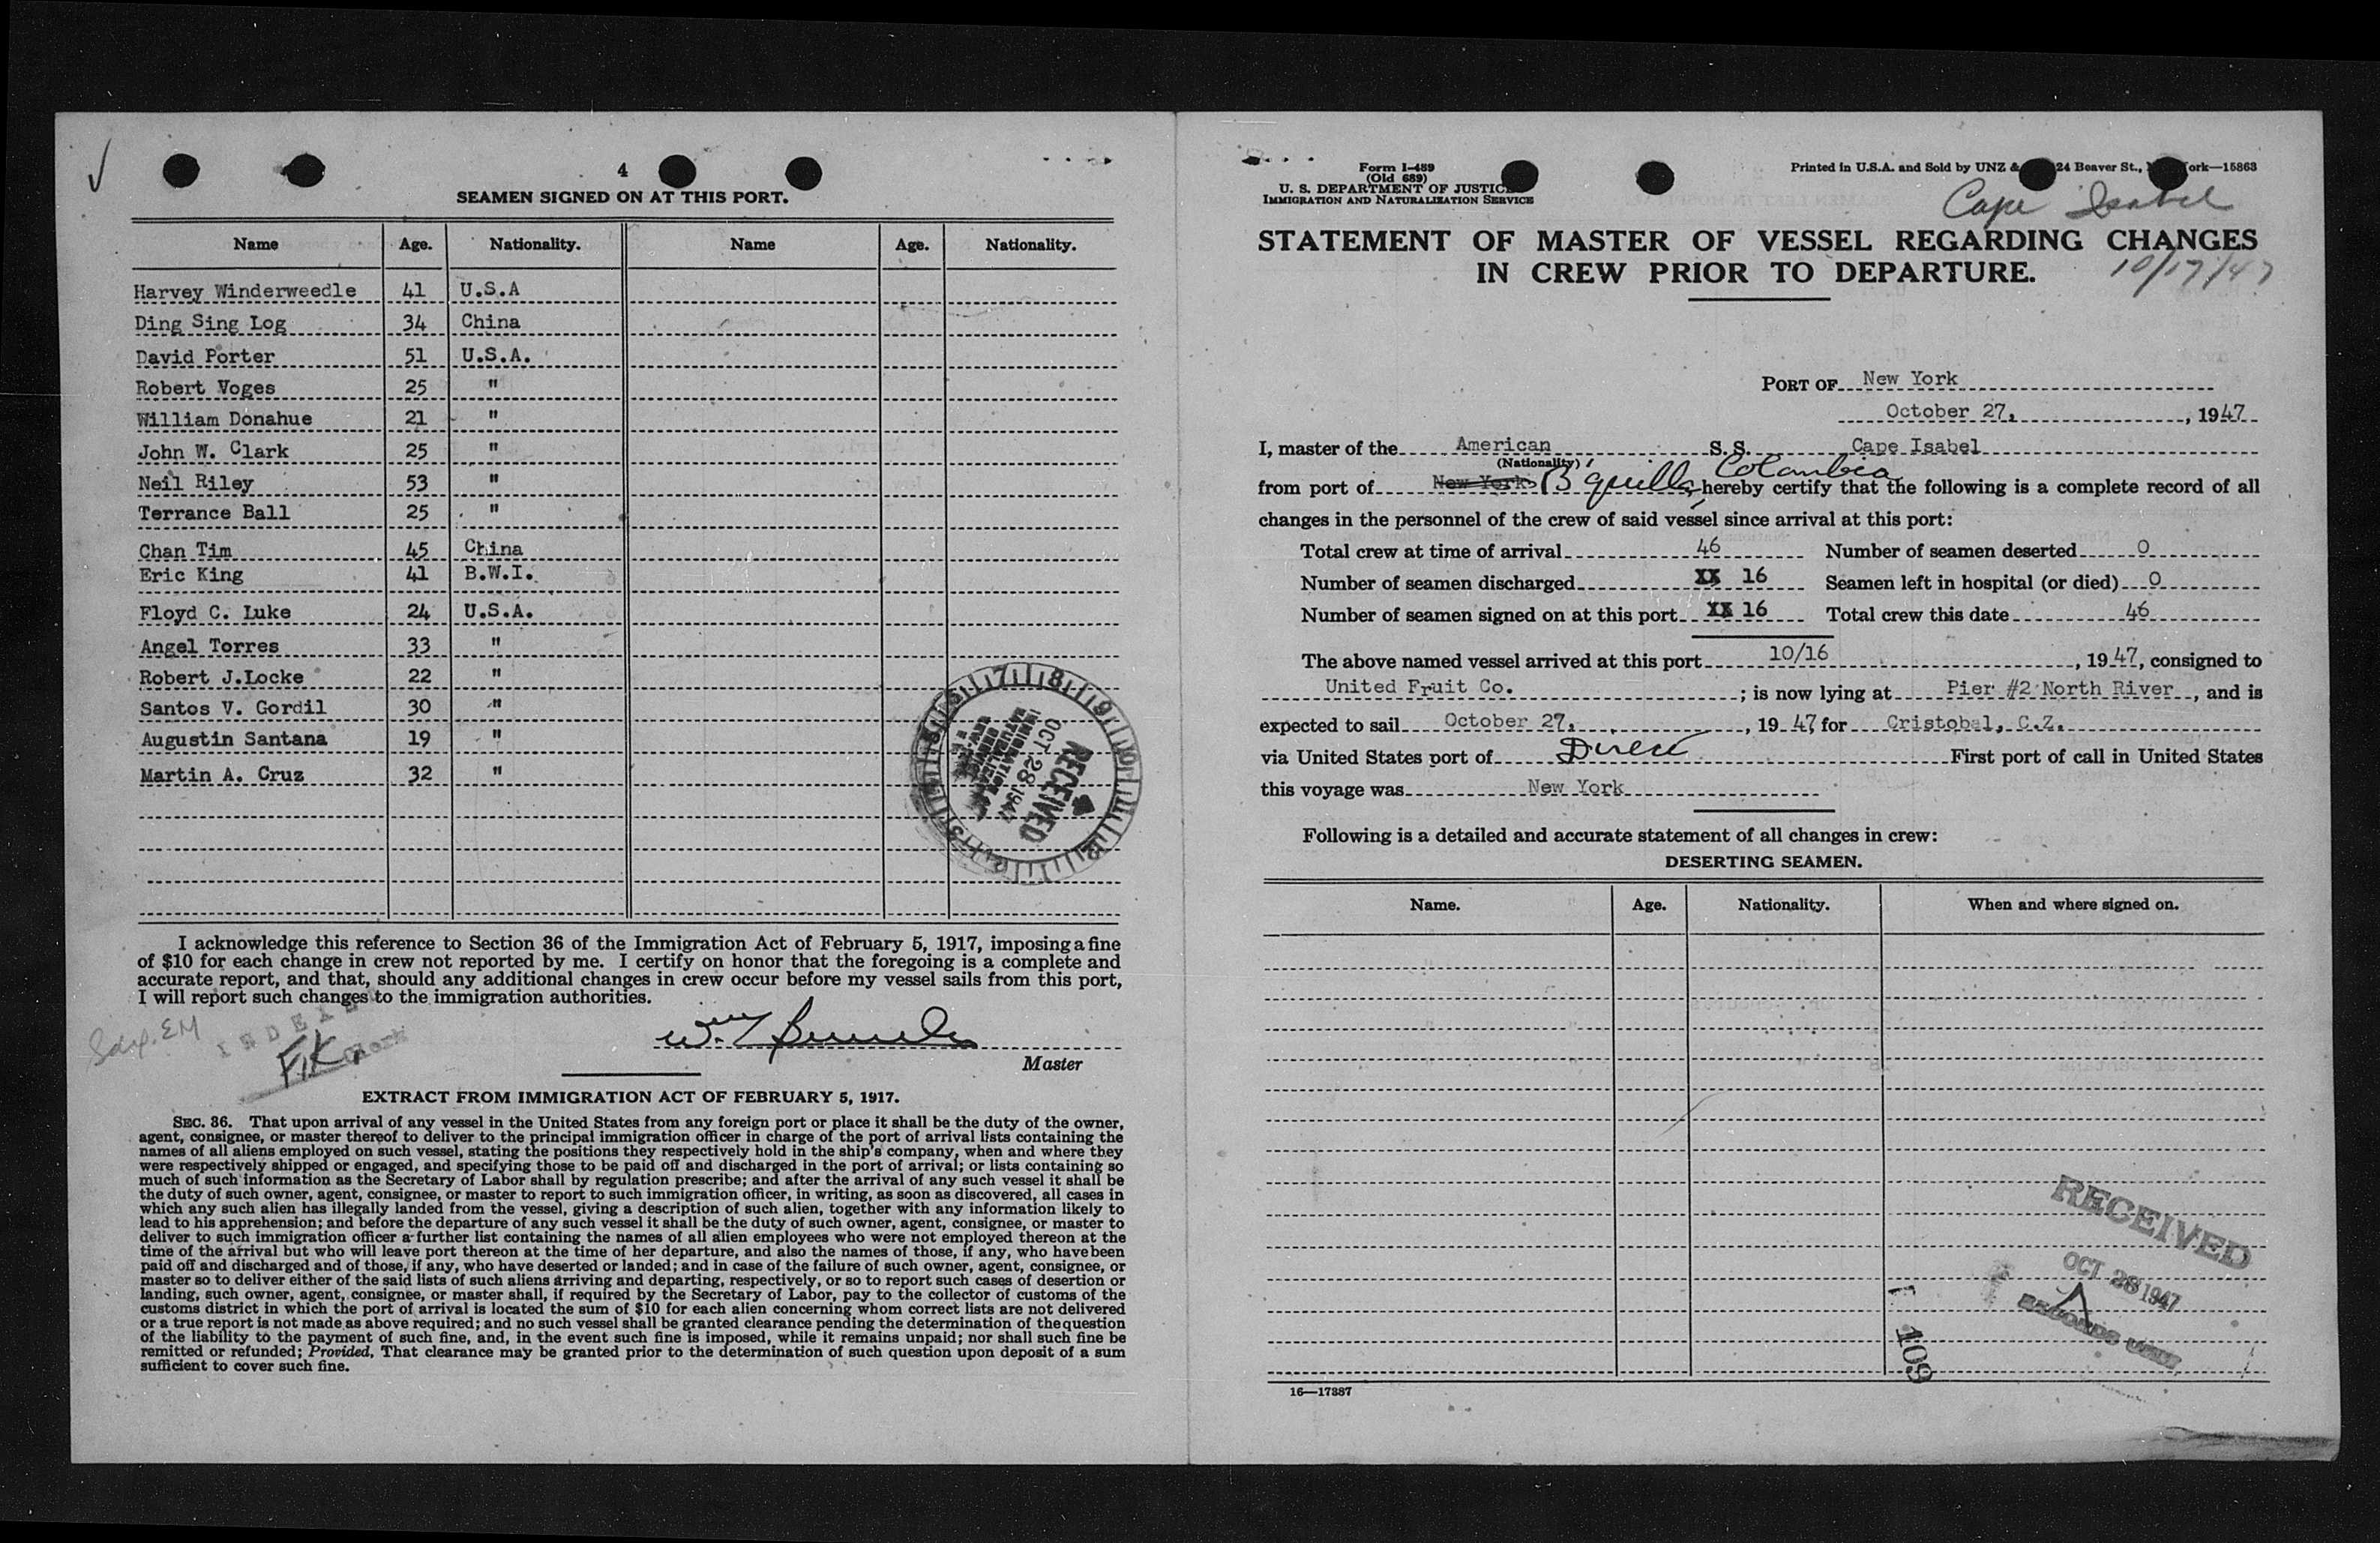 4
SEAMEN SIGNED ON AT THIS PORT.
Name Age. Nationality. Name Age. Nationality.
Harvey Winderweedle 41 U.S.A
Ding Sing Log 34 China
David Porter 51 U.S.A.
Robert Voges 25 "
William Donahue 21 "
John W. Clark 25 "
Neil Riley 53 "
Terrance Ball 25 "
Chan Tim 45 China
Eric King 41 B.W.I.
Floyd C. Luke 24 U.S.A.
Angel Torres 33 "
Robert J.Locke 22 "
Santos V. Gordil 30 "
Augustin Santana 19 "
Martin A. Cruz 32 "
RECEIVED
OCT 28 1947
I acknowledge this reference to Section 36 of the Immigration Act of February 5, 1917, imposing a fine
of $10 for each change in crew not reported by me. I certify on honor that the foregoing is a complete and
accurate report, and that, should any additional changes in crew occur before my vessel sails from this port,
I will report such changes to the immigration authorities.
INDEXED
FK
Clerk
Wm
Master
EXTRACT FROM IMMIGRATION ACT OF FEBRUARY 5, 1917.
SEC. 36. That upon arrival of any vessel in the United States from any foreign port or place it shall be the duty of the owner,
agent, consignee, or master thereof to deliver to the principal immigration officer in charge of the port of arrival lists containing the
names of all aliens employed on such vessel, stating the positions they respectively hold in the ship's company, when and where they
were respectively shipped or engaged, and specifying those to be paid off and discharged in the port of arrival; or lists containing so
much of such information as the Secretary of Labor shall by regulation prescribe; and after the arrival of any such vessel it shall be
the duty of such owner, agent, consignee, or master to report to such immigration officer, in writing, as soon as discovered, all cases in
which any such alien has illegally landed from the vessel, giving a description of such alien, together with any information likely to
lead to his apprehension; and before the departure of any such vessel it shall be the duty of such owner, agent, consignee, or master to
deliver to such immigration officer a further list containing the names of all alien employees who were not employed thereon at the
time of the arrival but who will leave port thereon at the time of her departure, and also the names of those, if any, who have been
paid off and discharged and of those, if any, who have deserted or landed; and in case of the failure of such owner, agent, consignee, or
master so to deliver either of the said lists of such aliens arriving and departing, respectively, or so to report such cases of desertion or
landing, such owner, agent, consignee, or master shall, if required by the Secretary of Labor, pay to the collector of customs of the
customs district in which the port of arrival is located the sum of $10 for each alien concerning whom correct lists are not delivered
or a true report is not made as above required; and no such vessel shall be granted clearance pending the determination of the question
of the liability to the payment of such fine, and, in the event such fine is imposed, while it remains unpaid; nor shall such fine be
remitted or refunded; Provided, That clearance may be granted prior to the determination of such question upon deposit of a sum
sufficient to cover such fine.
Form I-489
(Old 689)
U. S. DEPARTMENT OF JUSTICE
IMMIGRATION AND NATURALIZATION SERVICE
Printed in U.S.A. and Sold by UNZ & 24 Beaver St., ork—15863
Cape Isabel
STATEMENT OF MASTER OF VESSEL REGARDING CHANGES
IN CREW PRIOR TO DEPARTURE.
10/17/47
PORT OF New York
October 27, , 1947
I, master of the American S. S. Cape Isabel
(Nationality)
from port of New York B'quilla, Colombia hereby certify that the following is a complete record of all
changes in the personnel of the crew of said vessel since arrival at this port:
Total crew at time of arrival 46 Number of seamen deserted 0
Number of seamen discharged XX 16 Seamen left in hospital (or died) 0
Number of seamen signed on at this port XX 16 Total crew this date 46
The above named vessel arrived at this port 10/16 , 1947, consigned to
United Fruit Co. ; is now lying at Pier #2 North River , and is
expected to sail October 27, , 1947 for Cristobal, C.Z.
via United States port of Direct First port of call in United States
this voyage was New York
Following is a detailed and accurate statement of all changes in crew:
DESERTING SEAMEN.
Name. Age. Nationality. When and where signed on.
RECEIVED
OCT 28 1947
RECORDS
109
16—17387